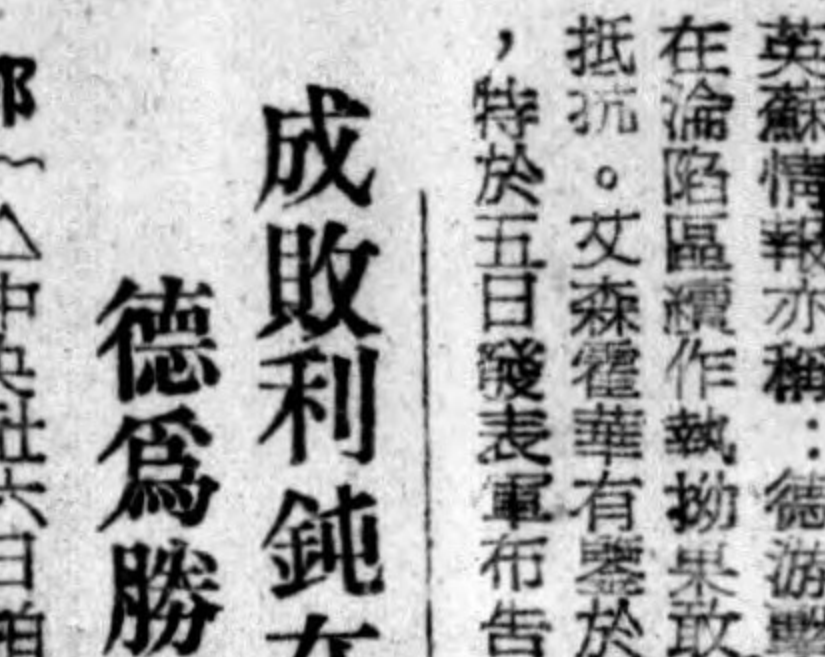 英蘇情報亦稱：德游擊
在淪陷區續作執拗果敢
抵抗。艾森霍華有鑒於
，特於五日發表軍布告
成敗利鈍在
德爲勝
部～△中央社六日